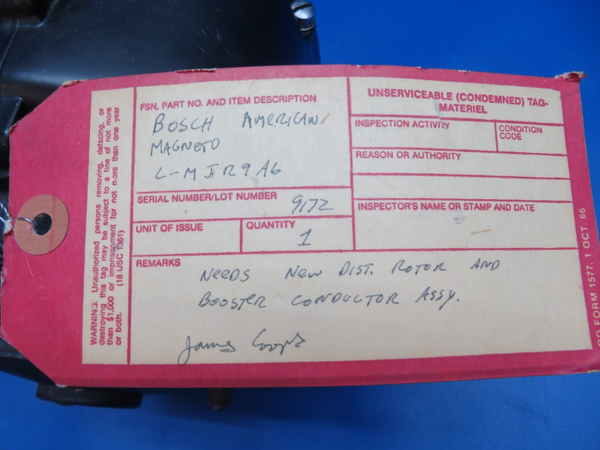 FSN, PART NO. AND ITEM DESCRIPTION
BOSCH AMERICAN
MAGNETO
SERIAL NUMBER/LOT NUMBER
9172
UNIT OF ISSUE
QUANTITY
1
UNSERVICEABLE (CONDEMNED) TAG-
MATERIEL
INSPECTION ACTIVITY
CONDITION
CODE
REASON OR AUTHORITY
INSPECTOR'S NAME OR STAMP AND DATE
REMARKS
NEEDS NEW DIST. ROTOR AND
BOOSTER CONDUCTOR ASSY.
James
WARNING: Unauthorized persons removing, defacing, or
destroying this tag may be subject to a fine of not more
than $1,000 or imprisonment for not more than one year
or both. (18 USC 1361)
DD FORM 1577, 1 OCT. 66